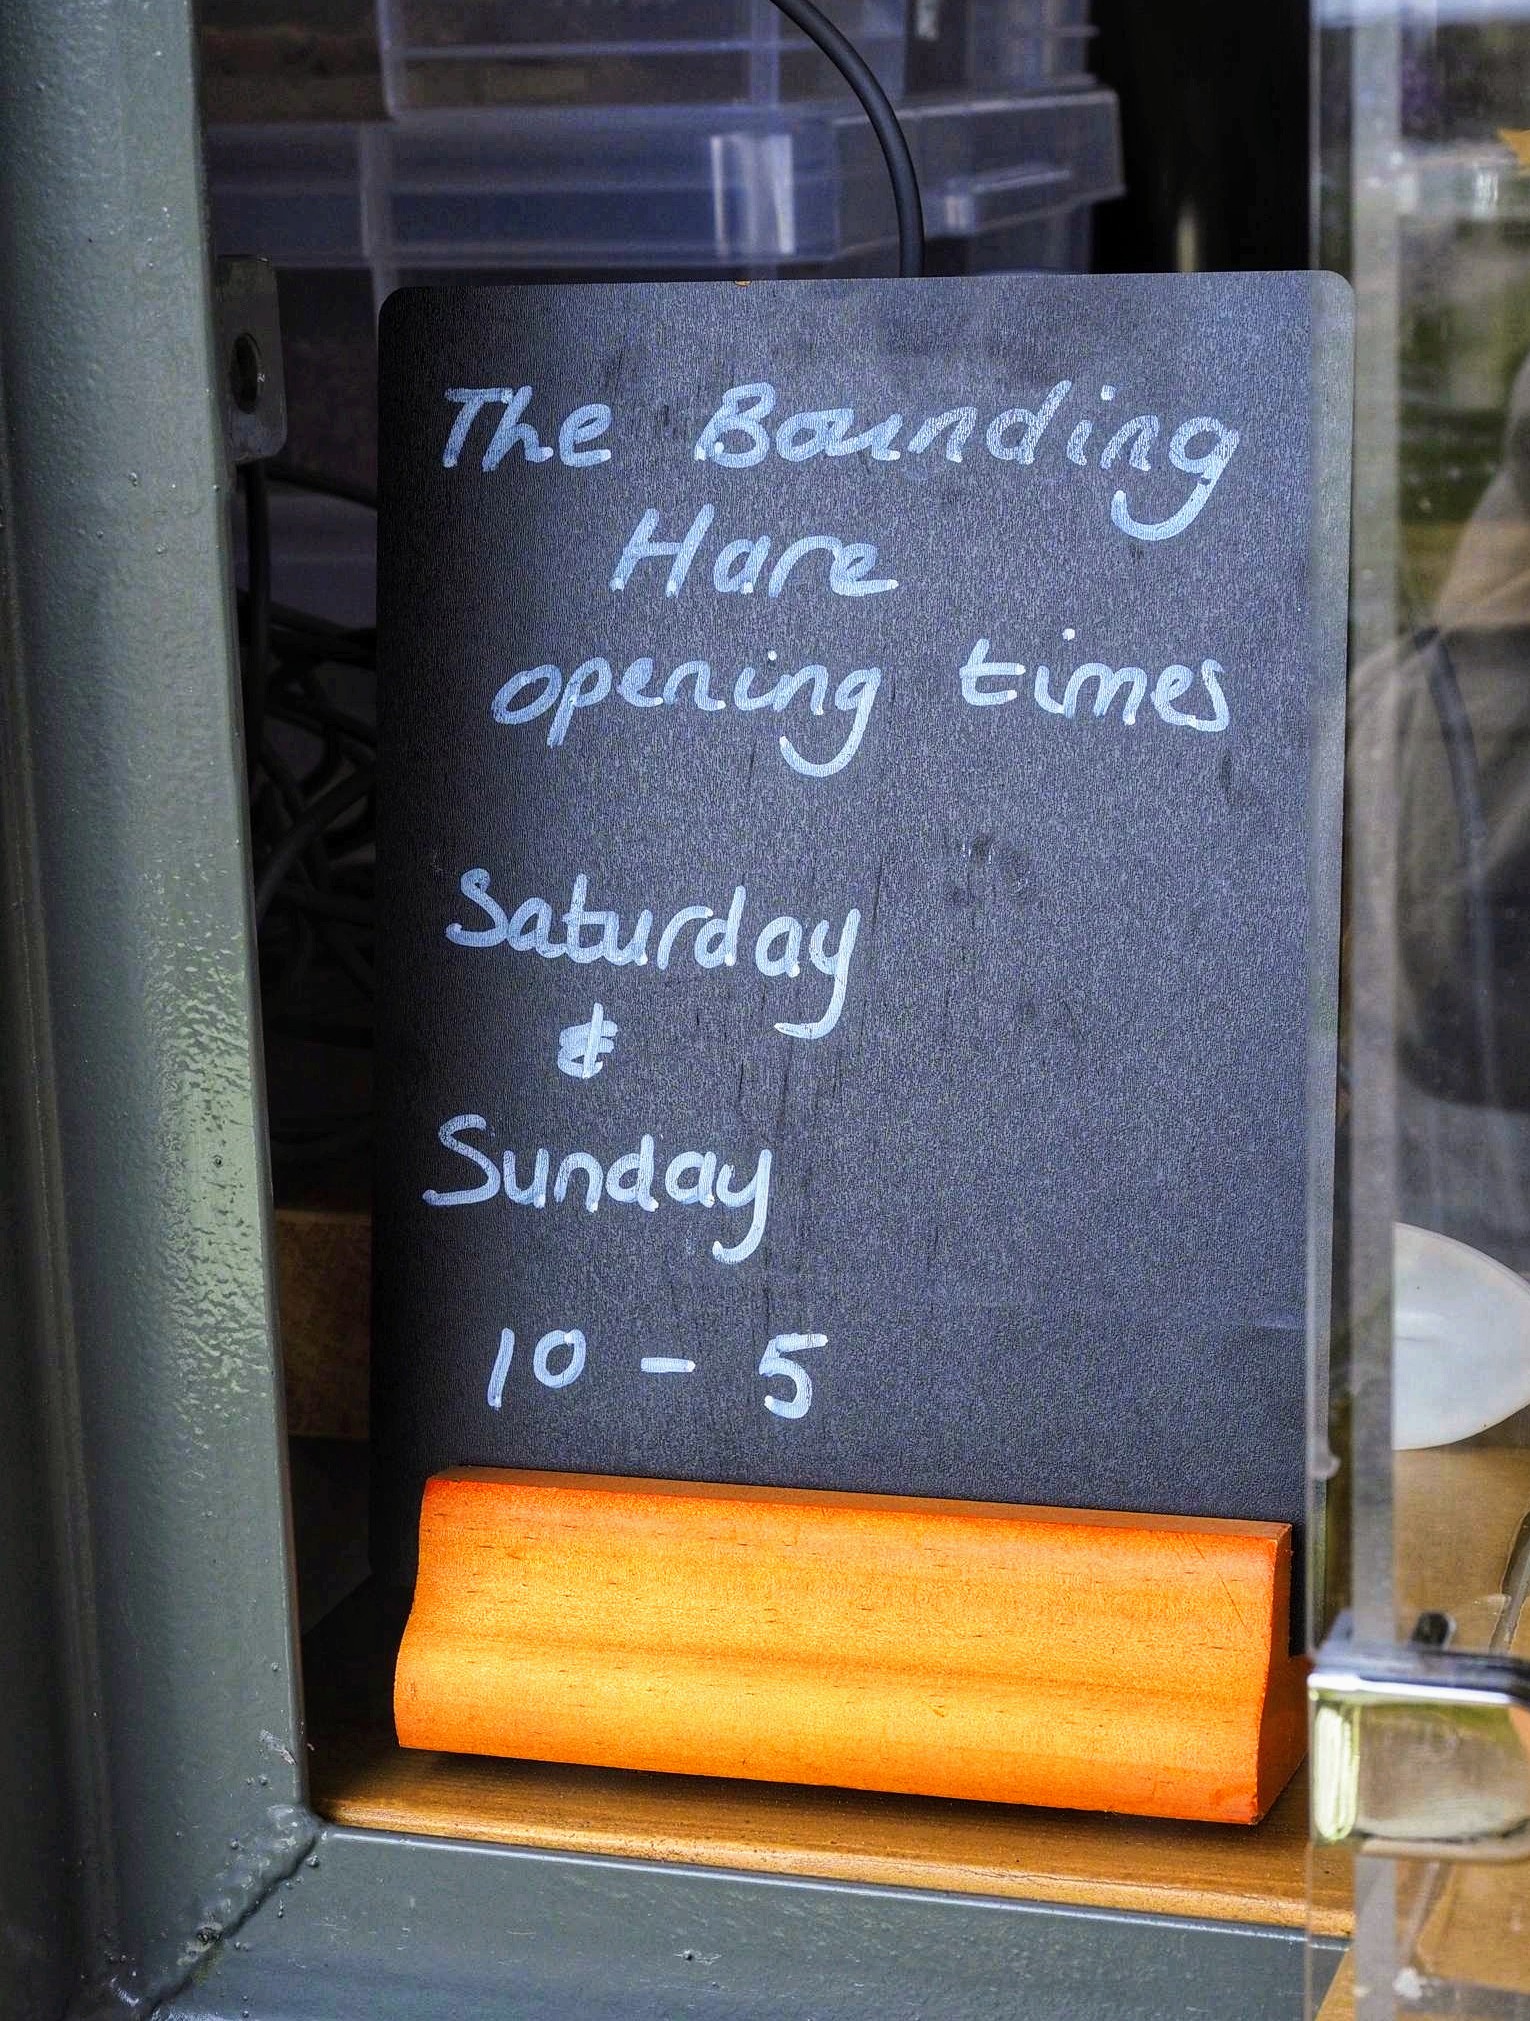 The Bounding
Hare
opening times
Saturday
&
Sunday
10 - 5